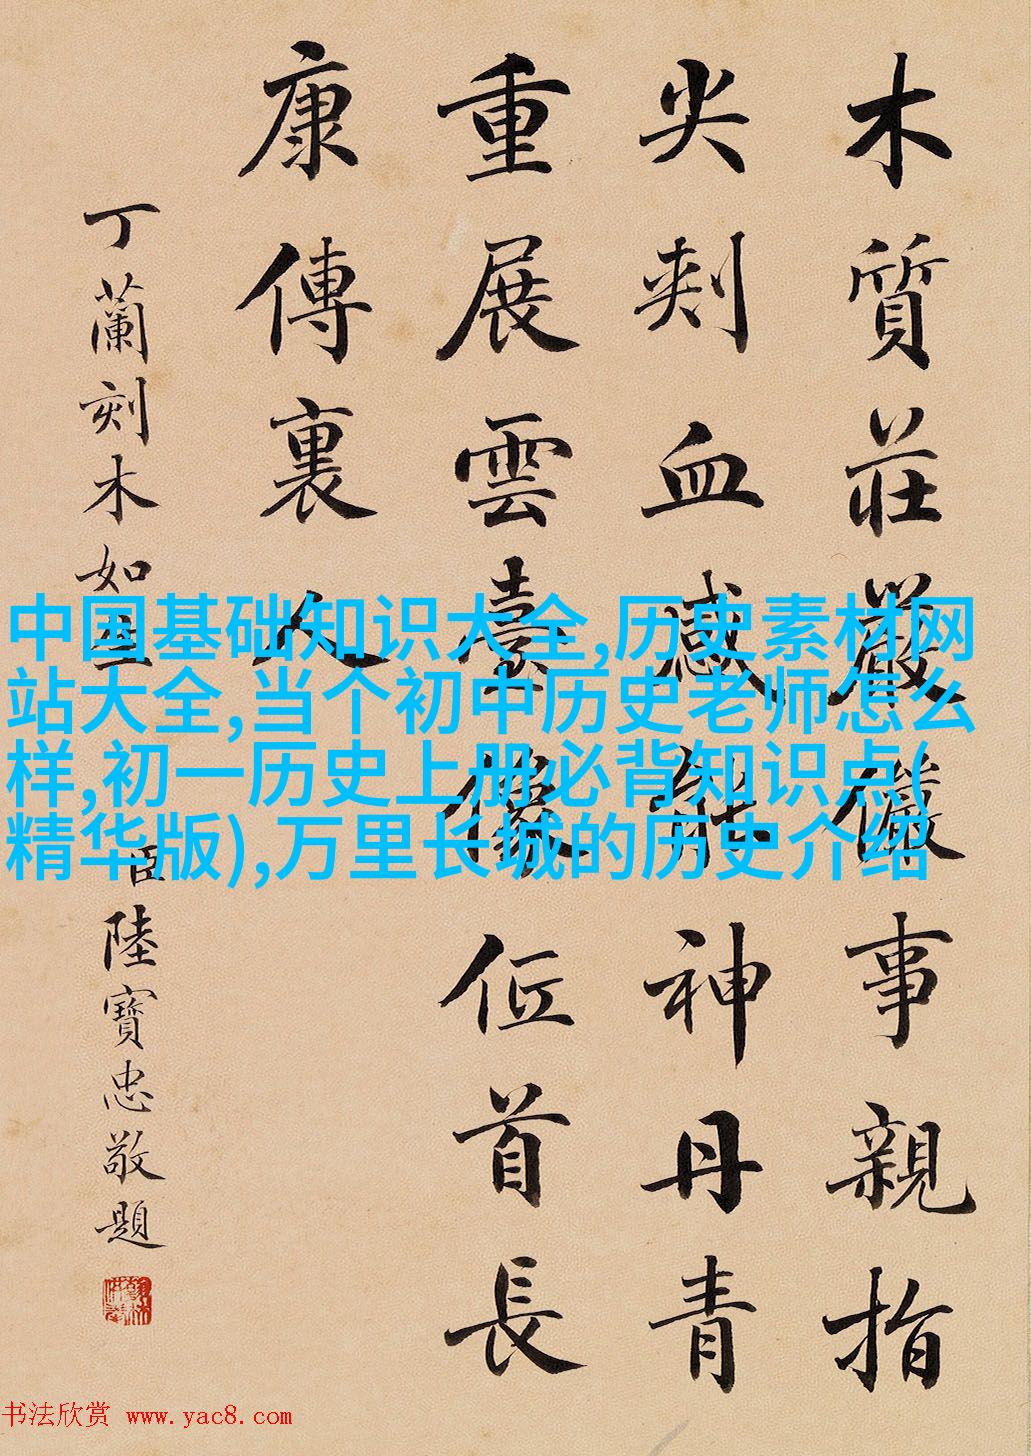 木質莊嚴儼事親指
尖刺血感能神丹青
重展雲臺像首長
康傳裏人
丁蘭刻木如
臣陸寶忠敬題
中国基础知识大全,历史素材网
站大全,当个初中历史老师怎么
样,初一历史上册必背知识点(
精华版),万里长城的历史介绍
书法欣赏 www.yac8.com